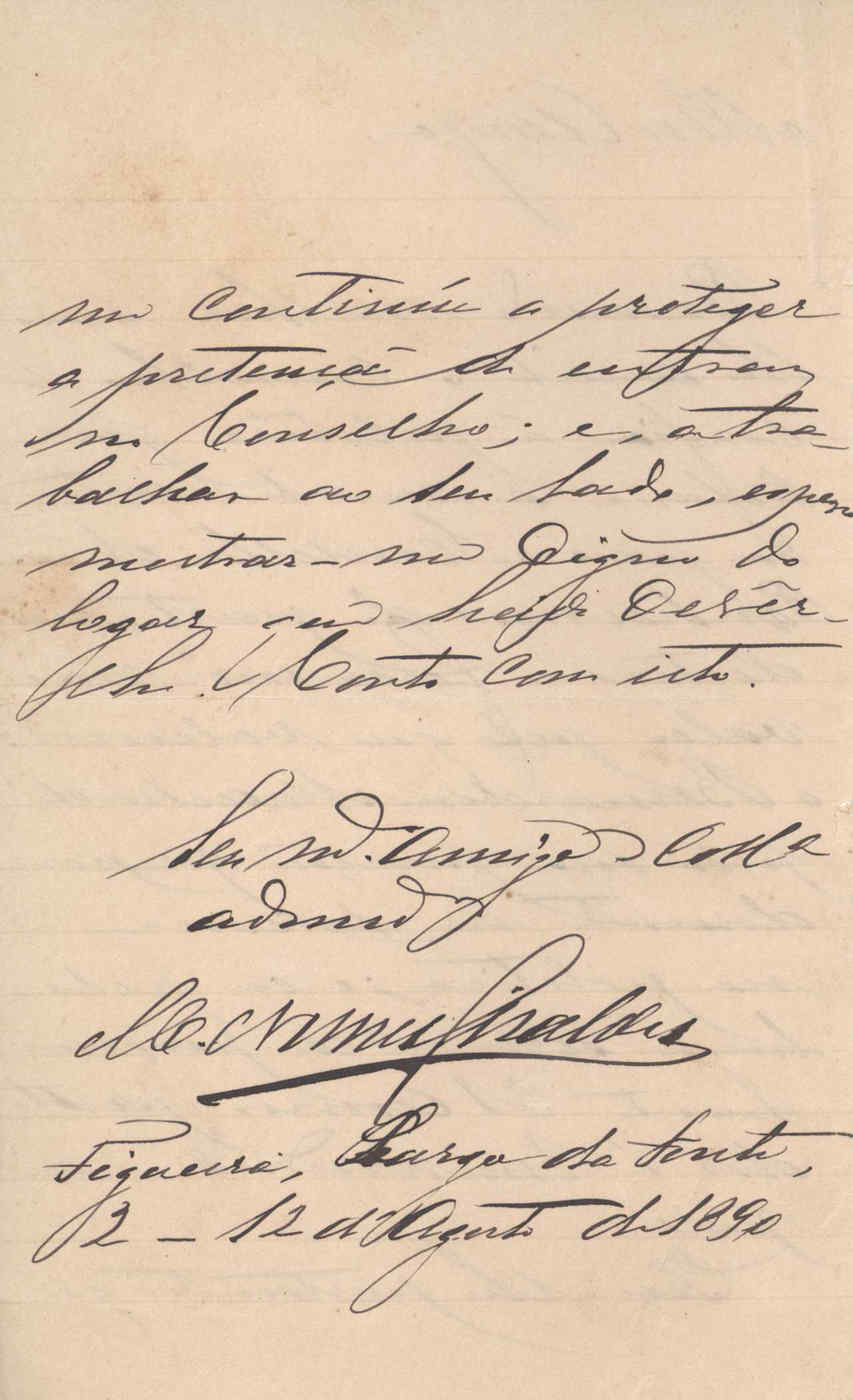 me continúe a proteger
a pretenção de entrar
no Conselho; e, a tra-
balhar ao seu lado, espero
mostrar-me digno do
logar que haja de sêr-
lhe. Conto com isto.
Seu m.do amigo e coll.a
admdor
M. Nunes Giraldes
Figueira, Largo da Fonte,
2 - 12 d'Agosto de 1890